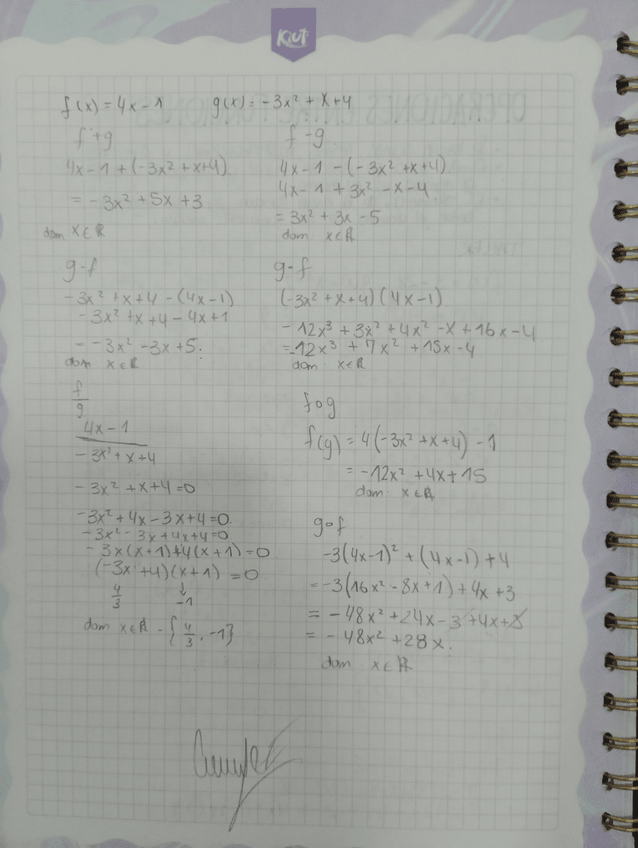 Kiut
f(x) = 4x - 1 g(x) = -3x² + x + 4
f + g
4x - 1 + (-3x² + x + 4)
= -3x² + 5x + 3
dom x ∈ ℝ
f - g
4x - 1 - (-3x² + x + 4)
4x - 1 + 3x² - x - 4
= 3x² + 3x - 5
dom x ∈ ℝ
g - f
-3x² + x + 4 - (4x - 1)
-3x² + x + 4 - 4x + 1
- -3x² - 3x + 5.
dom x ∈ ℝ
g · f
(-3x² + x + 4)(4x - 1)
-12x³ + 3x² + 4x² - x + 16x - 4
= -12x³ + 7x² + 15x - 4
dom x ∈ ℝ
f
g
4x - 1
-3x² + x + 4
-3x² + x + 4 = 0
-3x² + 4x - 3x + 4 = 0
-3x² - 3x + 4x + 4 = 0
-3x(x + 1) + 4(x + 1) = 0
(-3x + 4)(x + 1) = 0
4/3 ↓ -1
dom x ∈ ℝ - {4/3, -1}
f o g
f(g) = 4(-3x² + x + 4) - 1
= -12x² + 4x + 15
dom x ∈ ℝ
g o f
-3(4x - 1)² + (4x - 1) + 4
= -3(16x² - 8x + 1) + 4x + 3
= -48x² + 24x - 3 + 4x + 3
= -48x² + 28x.
dom x ∈ ℝ